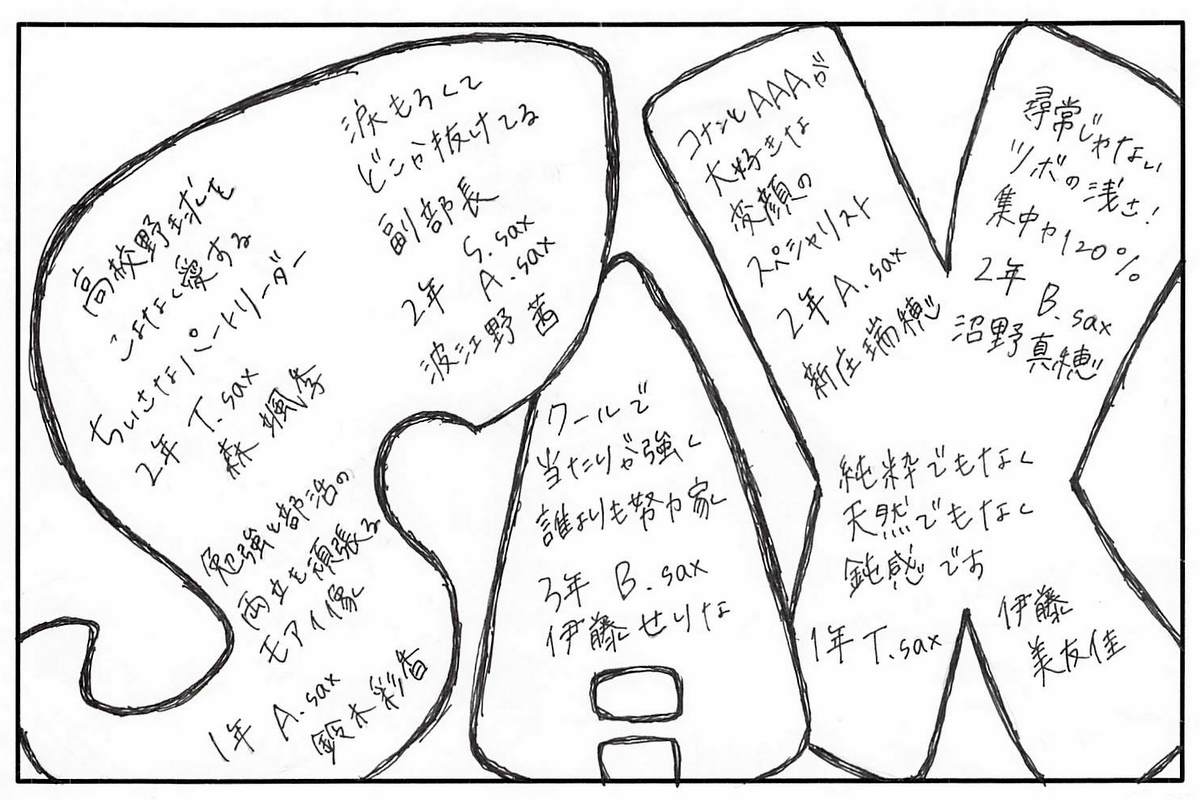 涙もろくて
どこか抜けてる
副部長
2年 S.sax
A.sax
波江野 茜
高校野球を
こよなく愛する
ちいさなパートリーダー
2年 T.sax
森 颯季
勉強と部活の
両立を頑張る
モアイ像
1年 A.sax
鈴木 彩香
クールで
当たりが強く
誰よりも努力家
3年 B.sax
伊藤 せりな
コナンとAAAが
大好きな
変顔の
スペシャリスト
2年 A.sax
新庄 瑞穂
尋常じゃない
ツボの浅さ!
集中力120%
2年 B.sax
沼野 真穂
純粋でもなく
天然でもなく
鈍感です
1年 T.sax
伊藤
美友佳